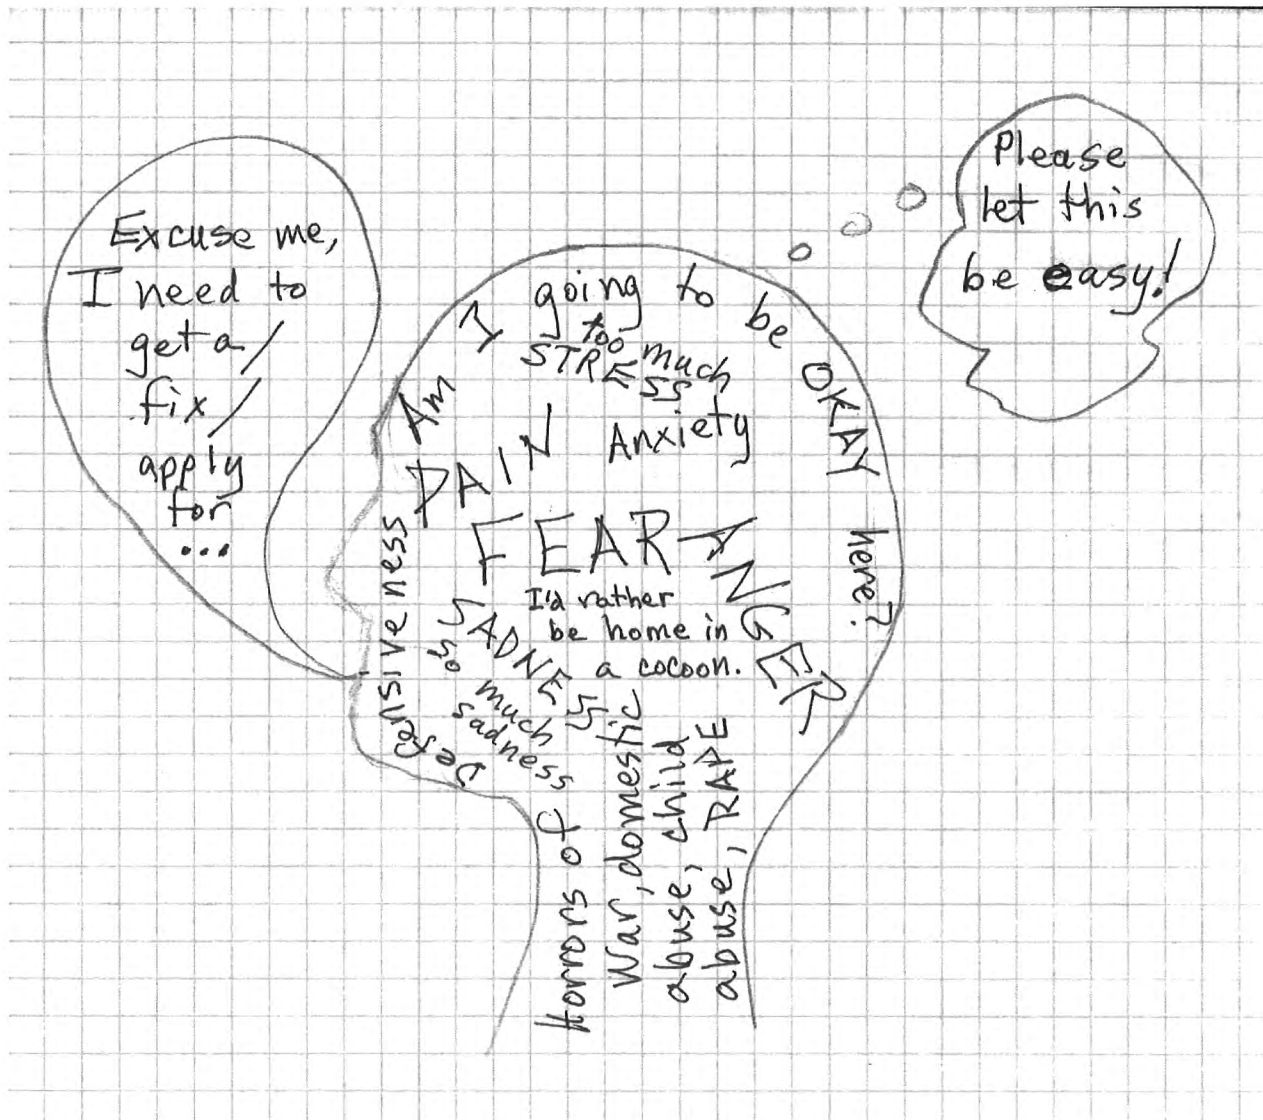 Excuse me,
I need to
get a/
fix/
apply
for
...
Please
let this
be easy!
Am I going to be OKAY here?
too much
STRESS
PAIN
Anxiety
FEAR
ANGER
I'd rather
be home in
a cocoon.
SADNESS
so much
sadness
Defensiveness
Horrors of
War, domestic
abuse, child
abuse, RAPE